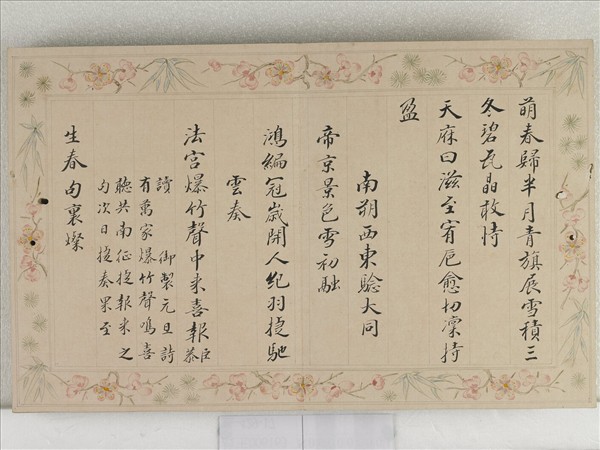 萌春歸半月青旗展雪積三
冬碧瓦晶敢恃
天庥曰滋至宥卮愈切凜持
盈
南朔西東驗大同
帝京景色雪初融
鴻編冠歲開人紀羽捷馳
雲奏
法宮爆竹聲中来喜報臣恭
讀御製元旦詩
有萬家爆竹聲鳴喜
聽共南征捷報来之
句次日捷奏果至
生春句裏燦